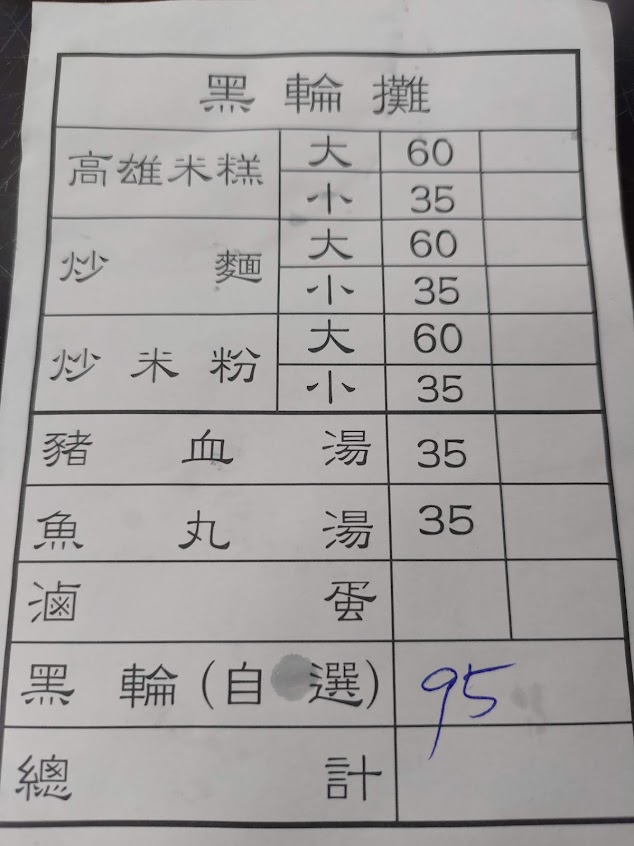 黑輪攤
高雄米糕 大 60
小 35
炒麵 大 60
小 35
炒米粉 大 60
小 35
豬血湯 35
魚丸湯 35
滷蛋
黑輪(自選) 95
總計